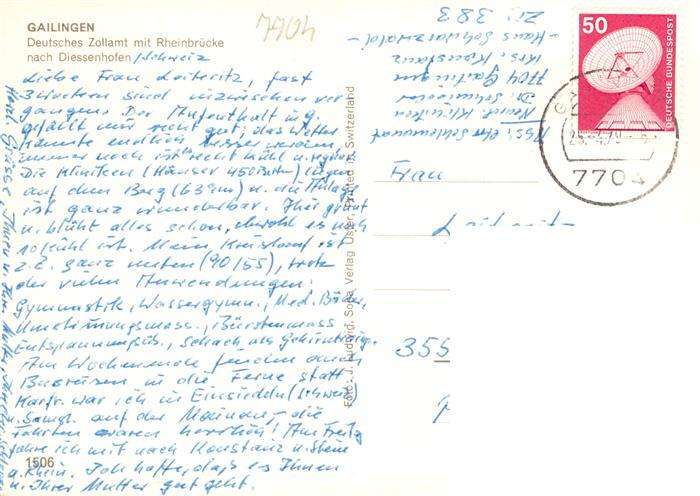 GAILINGEN
Deutsches Zollamt mit Rheinbrücke
nach Diessenhofen/Schweiz
7704
Liebe Frau Leiteritz, fast
3 Wochen sind inzwischen ver
gangen. Der Aufenthalt in G.
gefällt mir recht gut; das Wetter
könnte endlich besser werden,
immer noch ist recht kühl u. regner.
Die Kliniken (Häuser 450 Betten) liegen
auf dem Berg u. die Anlage
ist ganz wunderbar. Hier grünt
u. blüht alles schon, obwohl es noch
so kühl ist. Mein Kreislauf ist
z.Z. ganz unten (90/55), trotz
der vielen Anwendungen:
Gymnastik, Wassergymn., Med. Bäder,
Bürstenmass
Entspannungsüb., Schach als
Am Wochenende finden auch
Busreisen in die Ferne statt
Karfr. war ich in Einsiedeln (Schweiz
Samst. auf der Mainau – die
Fahrten waren herrlich! Am Freitag
fahre ich mit nach Konstanz u. Stein
a. Rhein. Ich hoffe, daß es Ihnen
u. Ihrer Mutter gut geht.
Herzl. Grüsse, Ihnen u. Ihrer Mutter,
1506
Foto: J. Ludwig, Verlag Uster, Printed in Switzerland
Zi. 383
- Haus Schwarzwald -
Krs. Konstanz
7704 Gailingen
Dr. Schmieder
Neurol. Kliniken
Frau
355
50
DEUTSCHE BUNDESPOST
7704